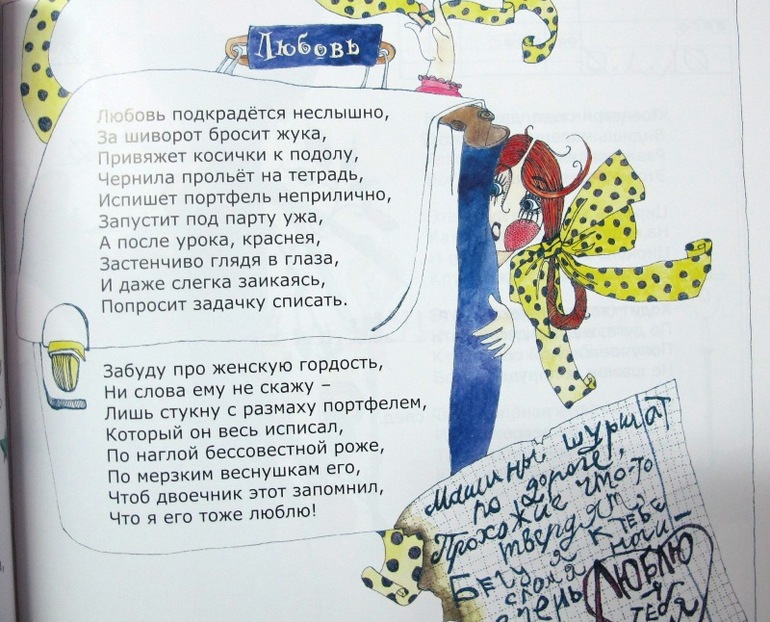 Любовь
Любовь подкрадётся неслышно,
За шиворот бросит жука,
Привяжет косички к подолу,
Чернила прольёт на тетрадь,
Испишет портфель неприлично,
Запустит под парту ужа,
А после урока, краснея,
Застенчиво глядя в глаза,
И даже слегка заикаясь,
Попросит задачку списать.
Забуду про женскую гордость,
Ни слова ему не скажу –
Лишь стукну с размаху портфелем,
Который он весь исписал,
По наглой бессовестной роже,
По мерзким веснушкам его,
Чтоб двоечник этот запомнил,
Что я его тоже люблю!
Машины шуршат
по дороге,
Прохожие что-то
твердят,
Бегу я к тебе
сломя ноги –
очень
ЛЮБЛЮ
Я
ТЕБЯ